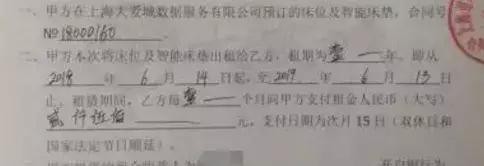 一、甲方在上海大爱城数据服务有限公司预订的床位及智能床垫，合同号
№18000160。
二、甲方本次将床位及智能床垫出租给乙方，租期为壹一年，即从
2018年6月14日起，至2019年6月13日
止。租赁期间，乙方每壹一个月向甲方支付租金人民币（大写）
贰仟伍佰元，支付日期为次月15日（双休日和
国家法定节日顺延）。